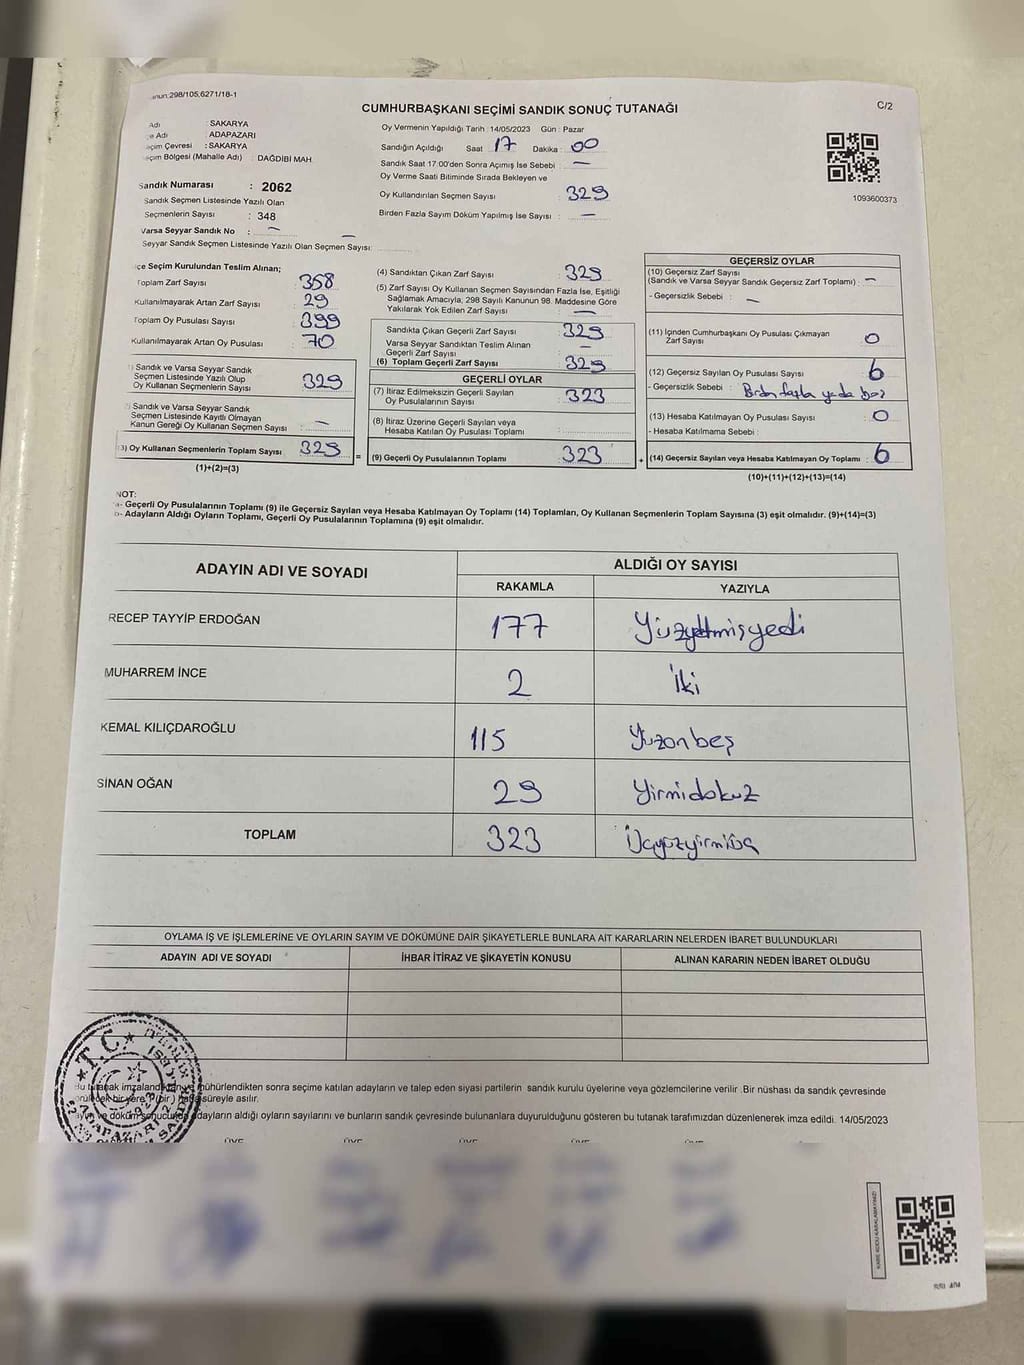 298/105,6271/18-1
CUMHURBAŞKANI SEÇİMİ SANDIK SONUÇ TUTANAĞI
C/2
Adı : SAKARYA
Adı : ADAPAZARI
Çevresi : SAKARYA
Bölgesi (Mahalle Adı) : DAĞDİBİ MAH
Sandık Numarası : 2062
Sandık Seçmen Listesinde Yazılı Olan
Seçmenlerin Sayısı : 348
Varsa Seyyar Sandık No : -
Seyyar Sandık Seçmen Listesinde Yazılı Olan Seçmen Sayısı: -
Oy Vermenin Yapıldığı Tarih : 14/05/2023 Gün : Pazar
Sandığın Açıldığı Saat 17 Dakika : 00
Sandık Saat 17:00'den Sonra Açımış İse Sebebi : -
Oy Verme Saati Bitiminde Sırada Bekleyen ve
Oy Kullandırılan Seçmen Sayısı : 329
Birden Fazla Sayım Döküm Yapılmış İse Sayısı : -
1093600373
Seçim Kurulundan Teslim Alınan;
Toplam Zarf Sayısı : 358
Kullanılmayarak Artan Zarf Sayısı : 29
Toplam Oy Pusulası Sayısı : 399
Kullanılmayarak Artan Oy Pusulası : 70
Sandık ve Varsa Seyyar Sandık
Seçmen Listesinde Yazılı Olup
Oy Kullanan Seçmenlerin Sayısı : 329
Sandık ve Varsa Seyyar Sandık
Seçmen Listesinde Kayıtlı Olmayan
Kanun Gereği Oy Kullanan Seçmen Sayısı : -
3) Oy Kullanan Seçmenlerin Toplam Sayısı : 329
(1)+(2)=(3)
(4) Sandıktan Çıkan Zarf Sayısı : 329
(5) Zarf Sayısı Oy Kullanan Seçmen Sayısından Fazla İse, Eşitliği
Sağlamak Amacıyla, 298 Sayılı Kanunun 98. Maddesine Göre
Yakılarak Yok Edilen Zarf Sayısı : -
Sandıkta Çıkan Geçerli Zarf Sayısı : 329
Varsa Seyyar Sandıktan Teslim Alınan
Geçerli Zarf Sayısı : -
(6) Toplam Geçerli Zarf Sayısı : 329
GEÇERLİ OYLAR
(7) İtiraz Edilmeksizin Geçerli Sayılan
Oy Pusulalarının Sayısı : 323
(8) İtiraz Üzerine Geçerli Sayılan veya
Hesaba Katılan Oy Pusulası Toplamı :
= (9) Geçerli Oy Pusulalarının Toplamı : 323
GEÇERSİZ OYLAR
(10) Geçersiz Zarf Sayısı
(Sandık ve Varsa Seyyar Sandık Geçersiz Zarf Toplamı) : -
- Geçersizlik Sebebi : -
(11) İçinden Cumhurbaşkanı Oy Pusulası Çıkmayan
Zarf Sayısı : 0
(12) Geçersiz Sayılan Oy Pusulası Sayısı : 6
- Geçersizlik Sebebi : Birden fazla yada boş
(13) Hesaba Katılmayan Oy Pusulası Sayısı : 0
- Hesaba Katılmama Sebebi :
+ (14) Geçersiz Sayılan veya Hesaba Katılmayan Oy Toplamı : 6
(10)+(11)+(12)+(13)=(14)
NOT:
a- Geçerli Oy Pusulalarının Toplamı (9) ile Geçersiz Sayılan veya Hesaba Katılmayan Oy Toplamı (14) Toplamları, Oy Kullanan Seçmenlerin Toplam Sayısına (3) eşit olmalıdır. (9)+(14)=(3)
b- Adayların Aldığı Oyların Toplamı, Geçerli Oy Pusulalarının Toplamına (9) eşit olmalıdır.
ADAYIN ADI VE SOYADI
ALDIĞI OY SAYISI
RAKAMLA YAZIYLA
RECEP TAYYİP ERDOĞAN 177 Yüzyetmişyedi
MUHARREM İNCE 2 İki
KEMAL KILIÇDAROĞLU 115 Yüzonbeş
SİNAN OĞAN 29 Yirmidokuz
TOPLAM 323 Üçyüzyirmiüç
OYLAMA İŞ VE İŞLEMLERİNE VE OYLARIN SAYIM VE DÖKÜMÜNE DAİR ŞİKAYETLERLE BUNLARA AİT KARARLARIN NELERDEN İBARET BULUNDUKLARI
ADAYIN ADI VE SOYADI İHBAR İTİRAZ VE ŞİKAYETİN KONUSU ALINAN KARARIN NEDEN İBARET OLDUĞU
T.C.
ADAPAZARI
Bu tutanak imzalandıktan ve mühürlendikten sonra seçime katılan adayların ve talep eden siyasi partilerin sandık kurulu üyelerine veya gözlemcilerine verilir .Bir nüshası da sandık çevresinde
bir yere 1 (bir) hafta süreyle asılır.
ve döküm sonucunda adayların aldığı oyların sayılarını ve bunların sandık çevresinde bulunanlara duyurulduğunu gösteren bu tutanak tarafımızdan düzenlenerek imza edildi. 14/05/2023
ÜYE ÜYE ÜYE ÜYE ÜYE
KARE KODU KARALAMAYINIZ!